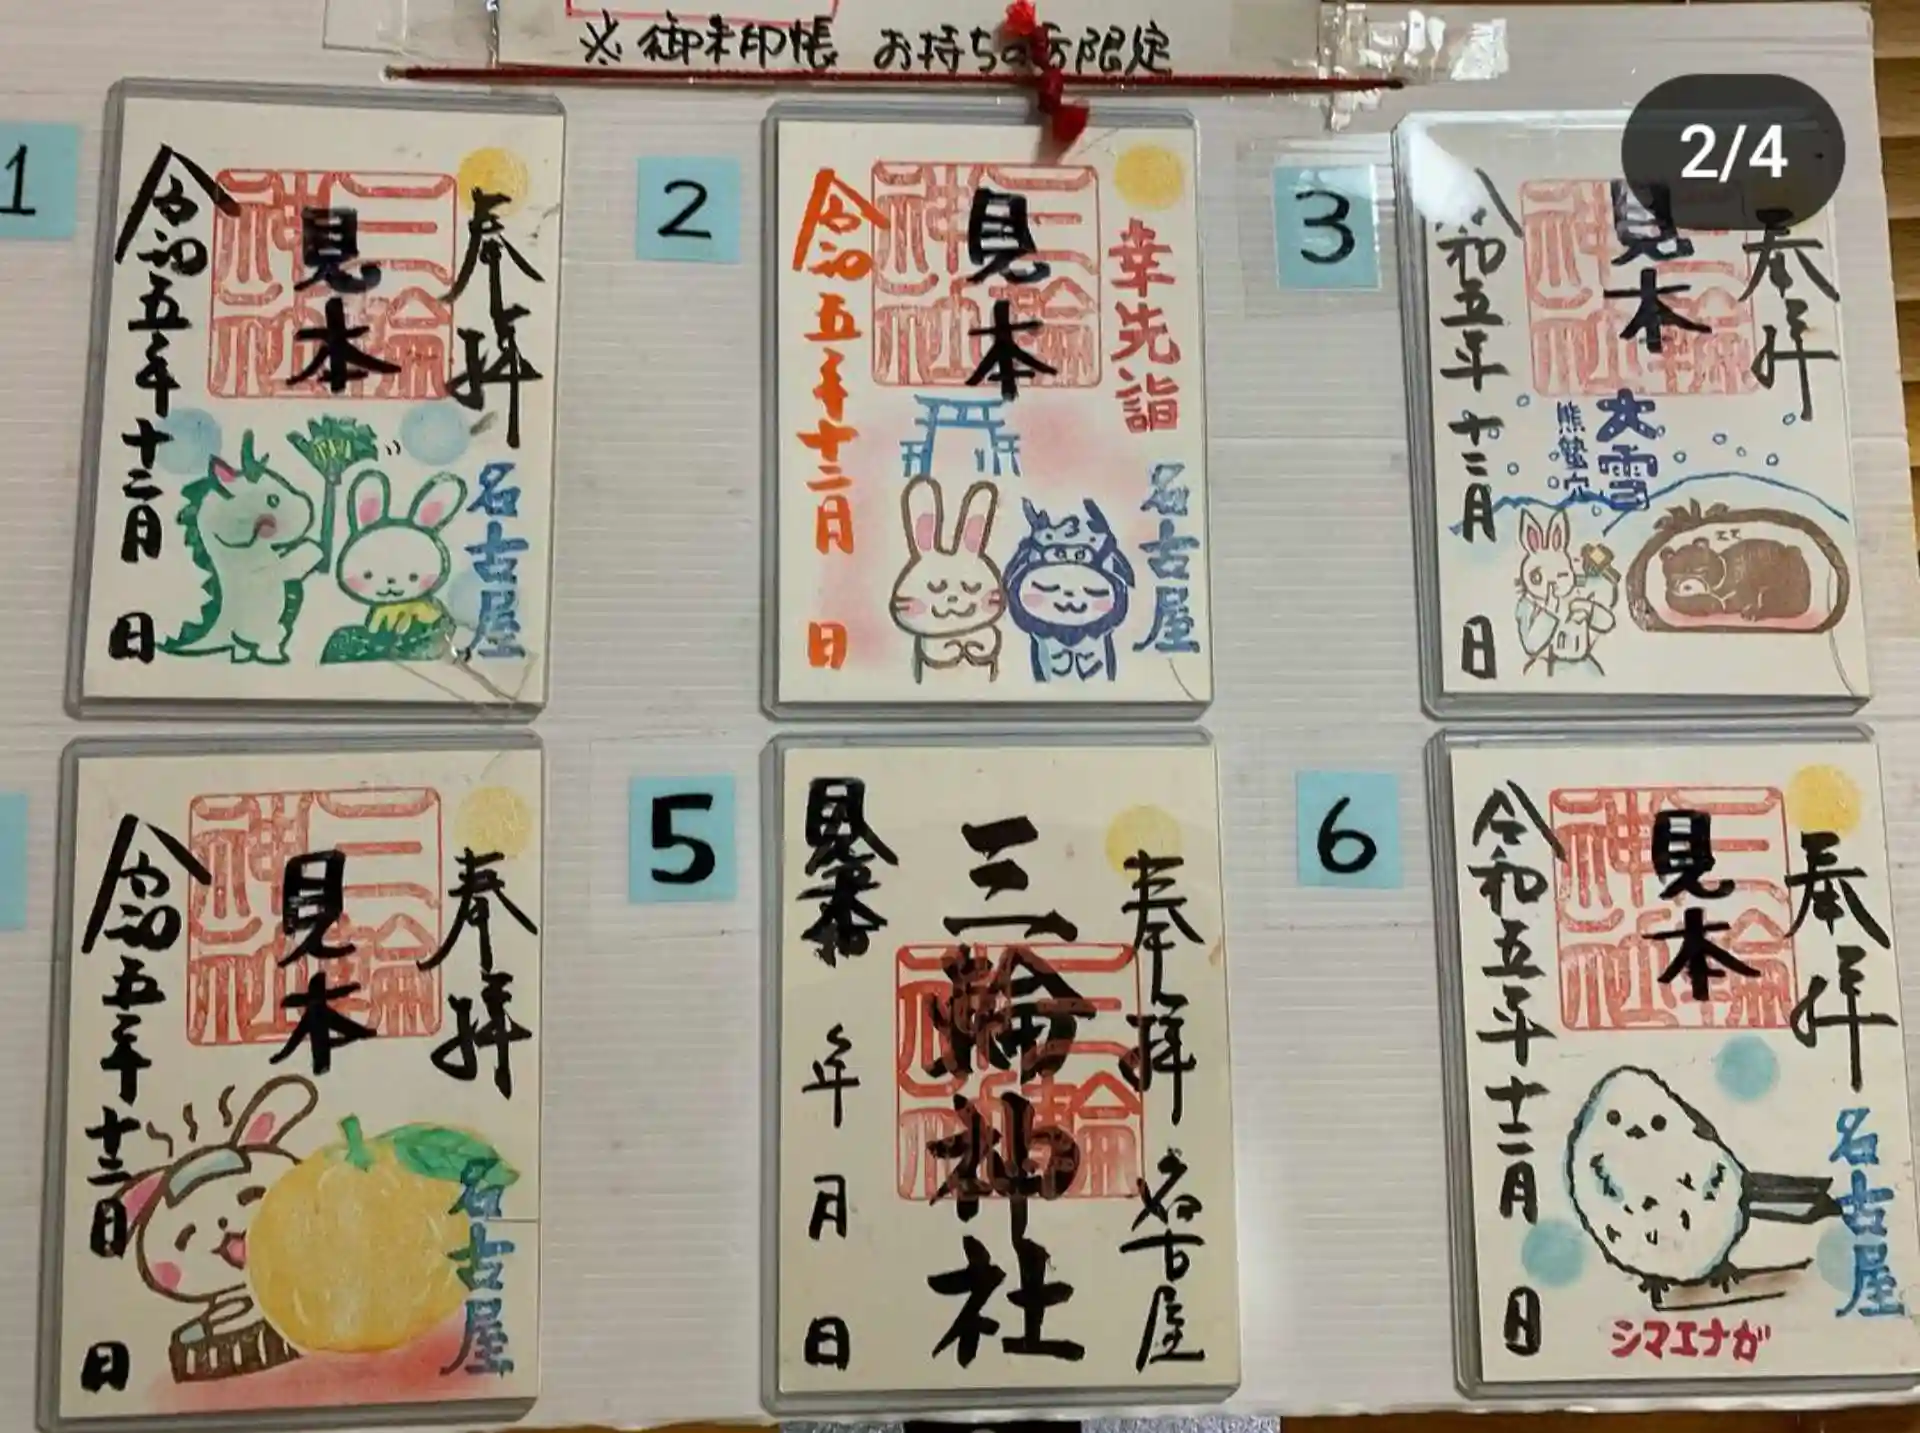 ※御朱印帳 お持ちの方限定
2/4
1
奉拝
三輪神社
見本
令和五年十二月 日
名古屋
2
幸先詣
三輪神社
見本
令和五年十二月 日
名古屋
3
奉拝
三輪神社
見本
大雪
熊蟄穴
令和五年十二月 日
奉拝
三輪神社
見本
令和五年十二月 日
名古屋
5
奉拝 名古屋
三輪神社
三輪神社
見本
年 月 日
6
奉拝
三輪神社
見本
令和五年十二月 日
名古屋
シマエナガ